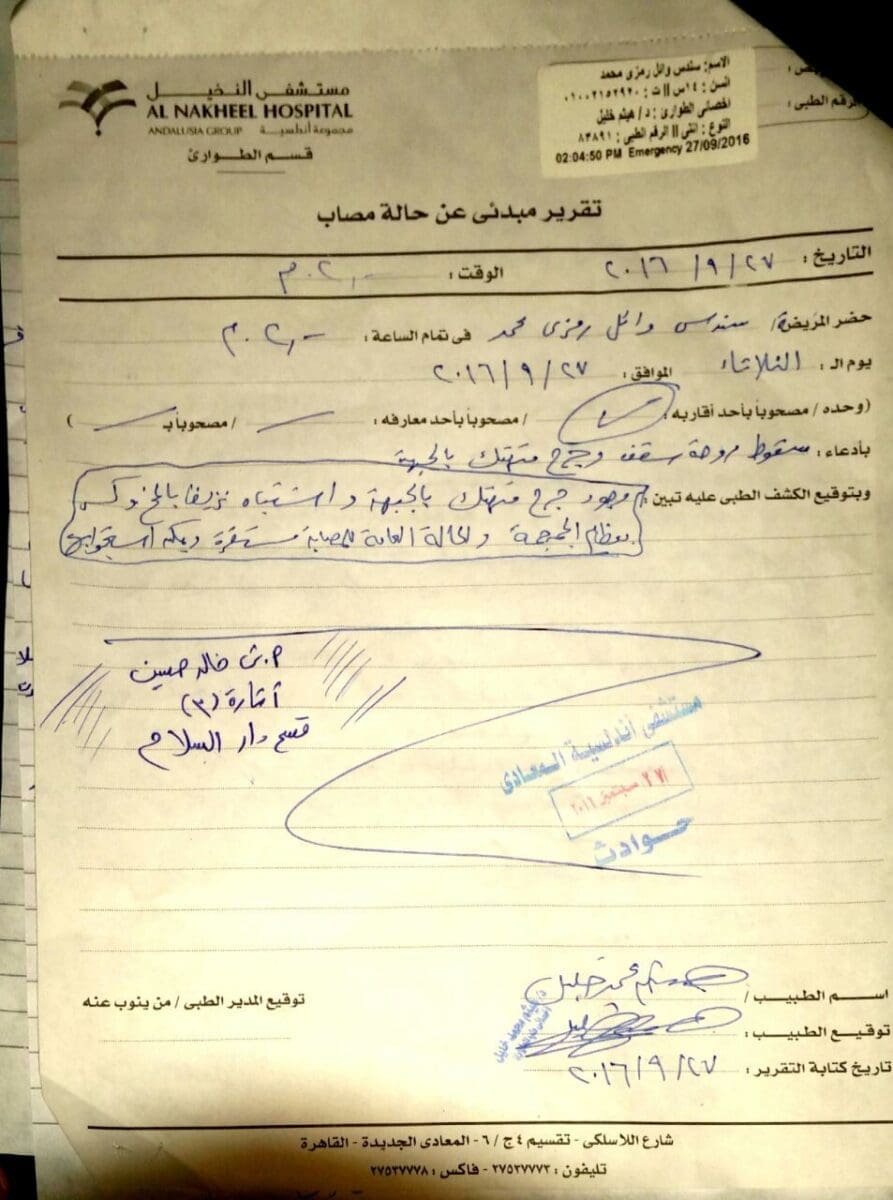 مستشفى النخيل
AL NAKHEEL HOSPITAL
ANDALUSIA GROUP مجموعة أندلسية
قسم الطوارئ
الاسم: سندس وائل رمزى محمد
السن: ١٤س || ت: ٠١٠٠٢١٥٢٩٢٠
اخصائى الطوارئ: د/ هيثم خليل
النوع: انثى || الرقم الطبى: ٨٣٨٩١
02:04:50 PM Emergency 27/09/2016
الرقم الطبى:
تقرير مبدئى عن حالة مصاب
التاريخ: ٢٧ / ٩ / ٢٠١٦ الوقت: ٢,٠٠ م
حضر المريضة/ سندس وائل رمزى محمد فى تمام الساعة: ٢,٠٠ م
يوم الـ: الثلاثاء الموافق: ٢٧ / ٩ / ٢٠١٦
(وحده / مصحوباً بأحد أقاربه: / مصحوباً بأحد معارفه: / مصحوباً بـ )
بأدعاء: سقوط مروحة سقف وجرح متهتك بالجبهة
وبتوقيع الكشف الطبى عليه تبين: وجود جرح متهتك بالجبهة واشتباه نزيف بالمخ وكسر
بعظام الجمجمة والحالة العامة للمصابة مستقرة ويمكن استجوابها
خالد حسين
(٣)
قسم دار السلام
مستشفى أندلسية المعادى
٢٧ سبتمبر ٢٠١٦
حوادث
اسم الطبيب / هيثم محمد خليل
توقيع الطبيب:
تاريخ كتابة التقرير: ٢٧ / ٩ / ٢٠١٦
توقيع المدير الطبى / من ينوب عنه
شارع اللاسلكى - تقسيم ٤ج / ٦ - المعادى الجديدة - القاهرة
تليفون: ٢٧٥٣٧٧٧٢ - فاكس: ٢٧٥٣٧٧٧٨